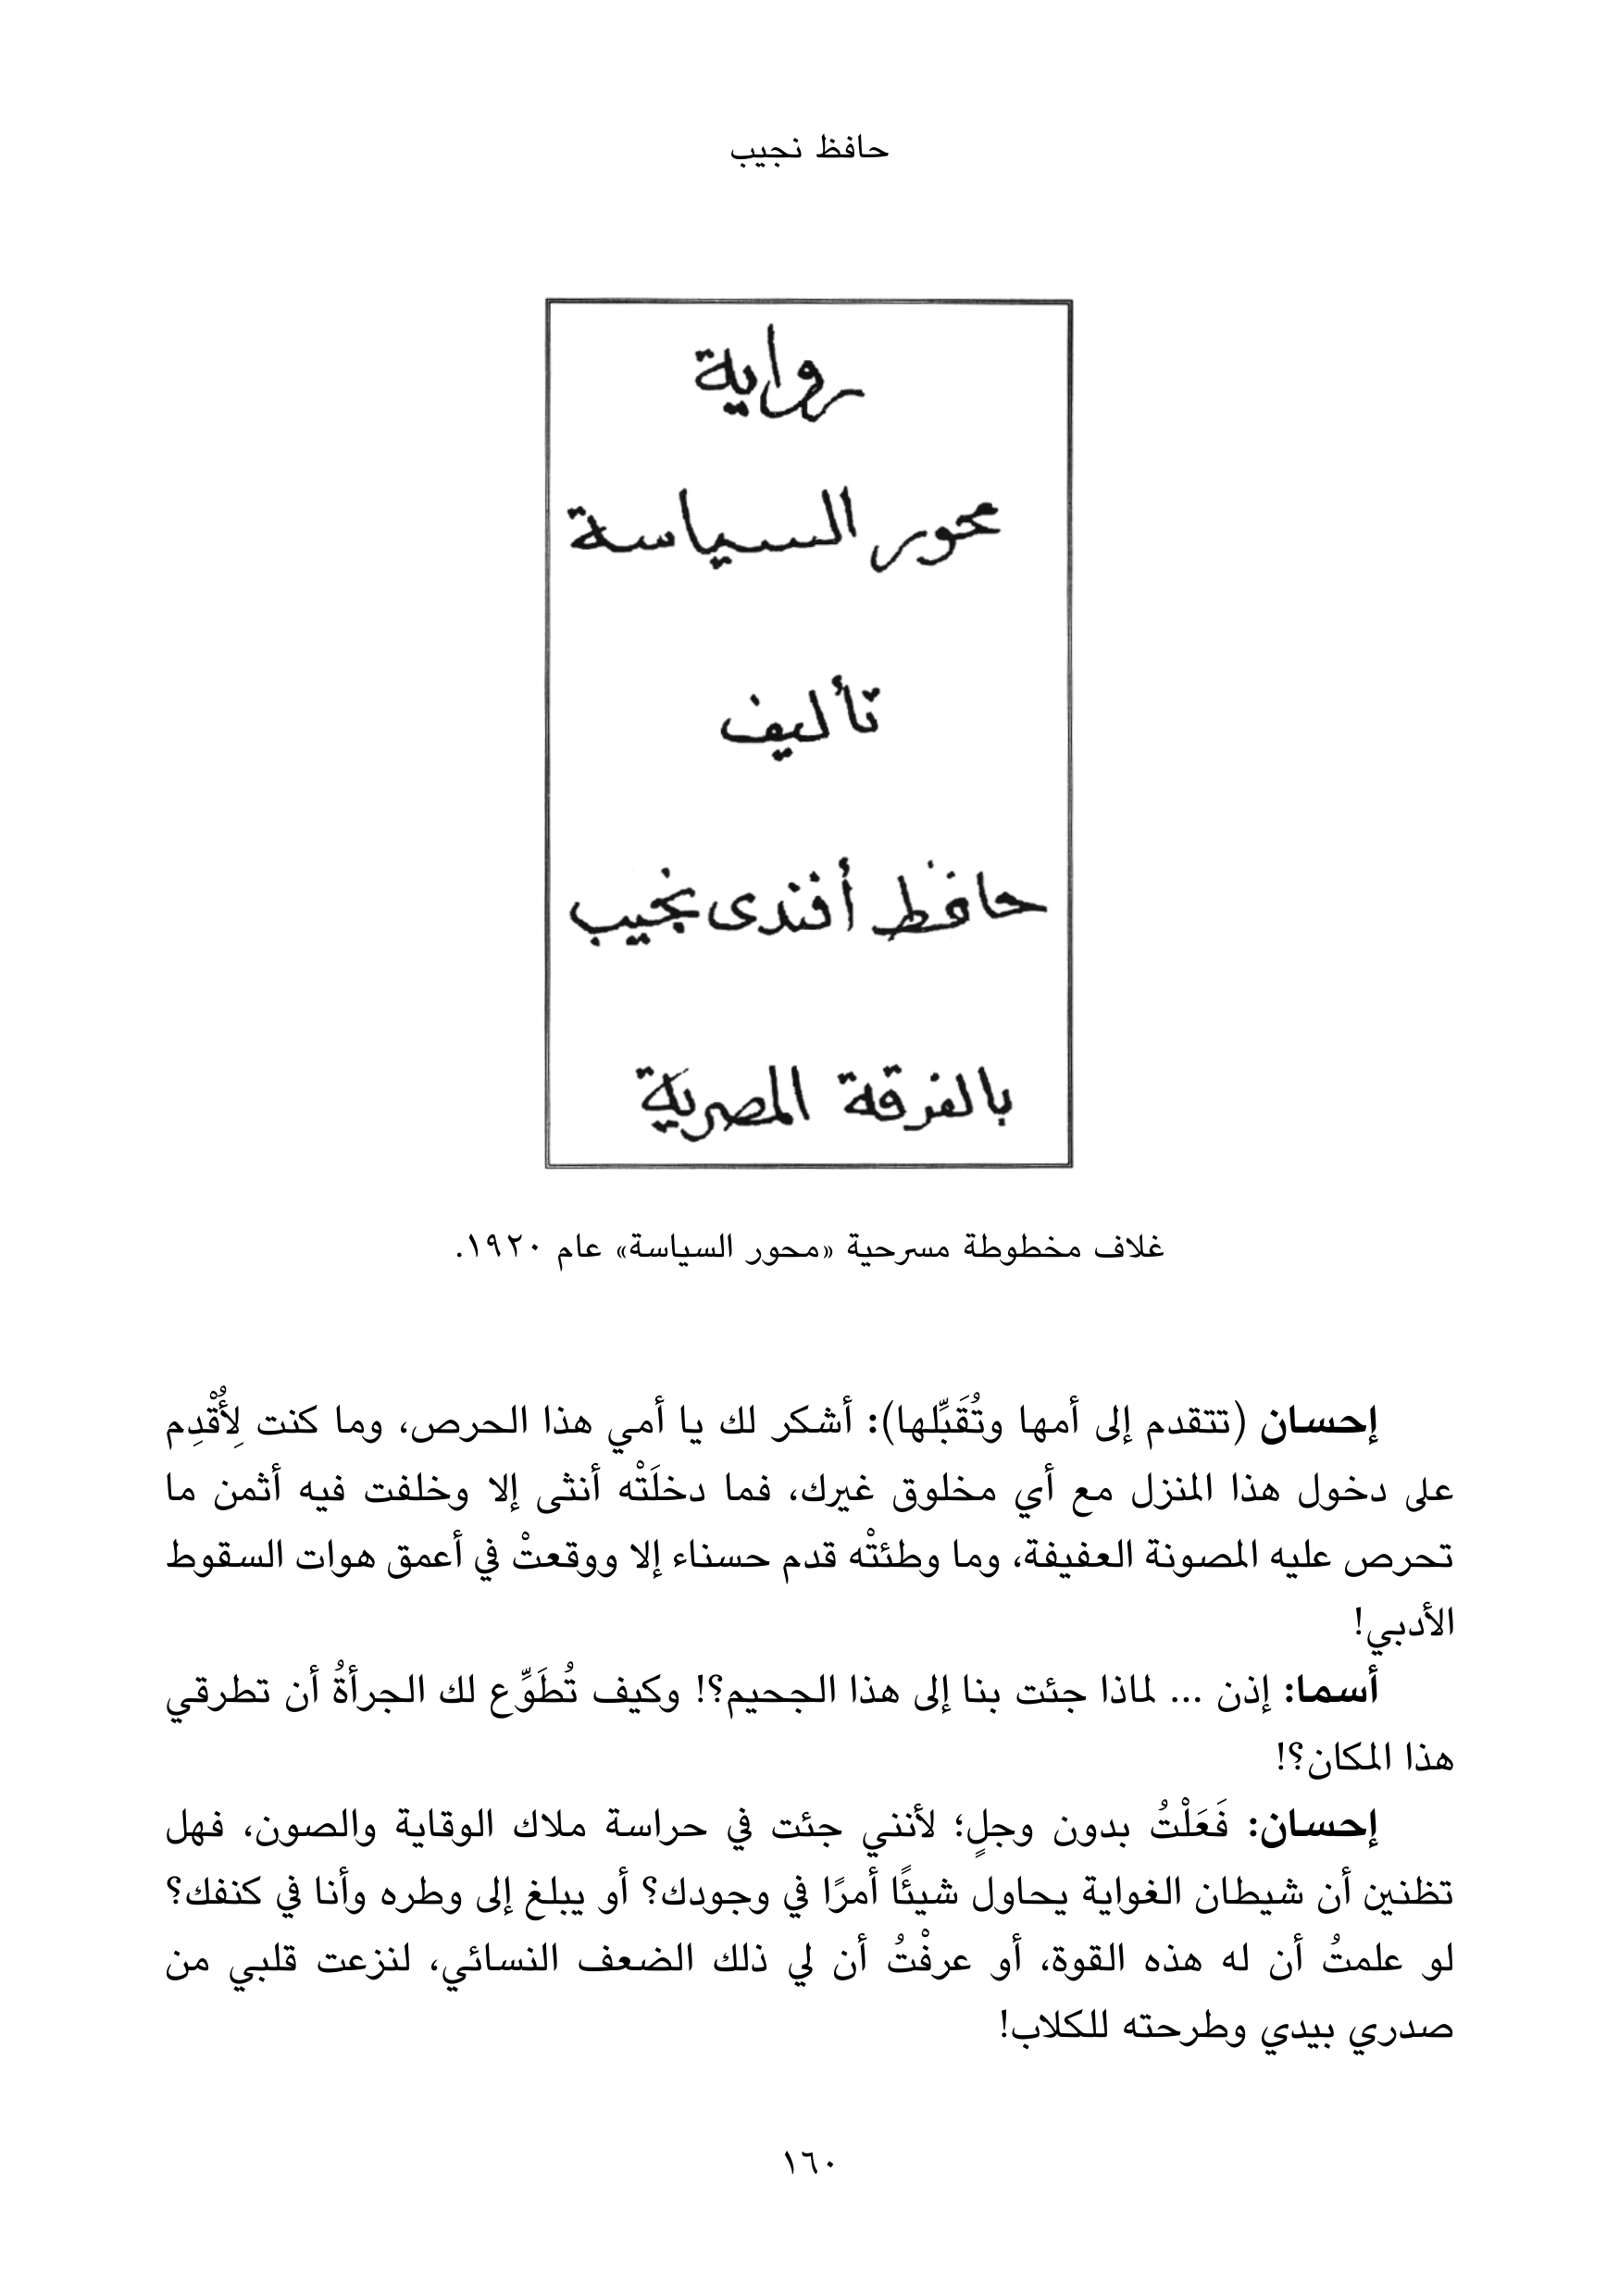 حافظ نجيب
رواية
محور السياسة
تأليف
حافظ أفندى نجيب
بالفرقة المصرية
غلاف مخطوطة مسرحية «محور السياسة» عام ١٩٢٠.
إحسان (تتقدم إلى أمها وتُقَبِّلها): أشكر لك يا أمي هذا الحرص، وما كنت لِأُقْدِم
على دخول هذا المنزل مع أي مخلوق غيرك، فما دخلَتْه أنثى إلا وخلفت فيه أثمن ما
تحرص عليه المصونة العفيفة، وما وطئتْه قدم حسناء إلا ووقعتْ في أعمق هوات السقوط
الأدبي!
أسما: إذن ... لماذا جئت بنا إلى هذا الجحيم؟! وكيف تُطَوِّع لك الجرأةُ أن تطرقي
هذا المكان؟!
إحسان: فَعَلْتُ بدون وجلٍ؛ لأنني جئت في حراسة ملاك الوقاية والصون، فهل
تظنين أن شيطان الغواية يحاول شيئًا أمرًا في وجودك؟ أو يبلغ إلى وطره وأنا في كنفك؟
لو علمتُ أن له هذه القوة، أو عرفْتُ أن لي ذلك الضعف النسائي، لنزعت قلبي من
صدري بيدي وطرحته للكلاب!
١٦٠